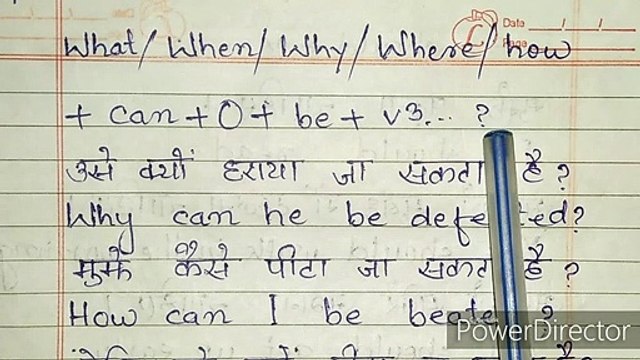 Data / /
What/When/Why/Where/how
+ can + O + be + v3... ?
उसे क्यों हराया जा सकता है?
Why can he be defeated?
मुझे कैसे पीटा जा सकता है?
How can I be beaten?
PowerDirector